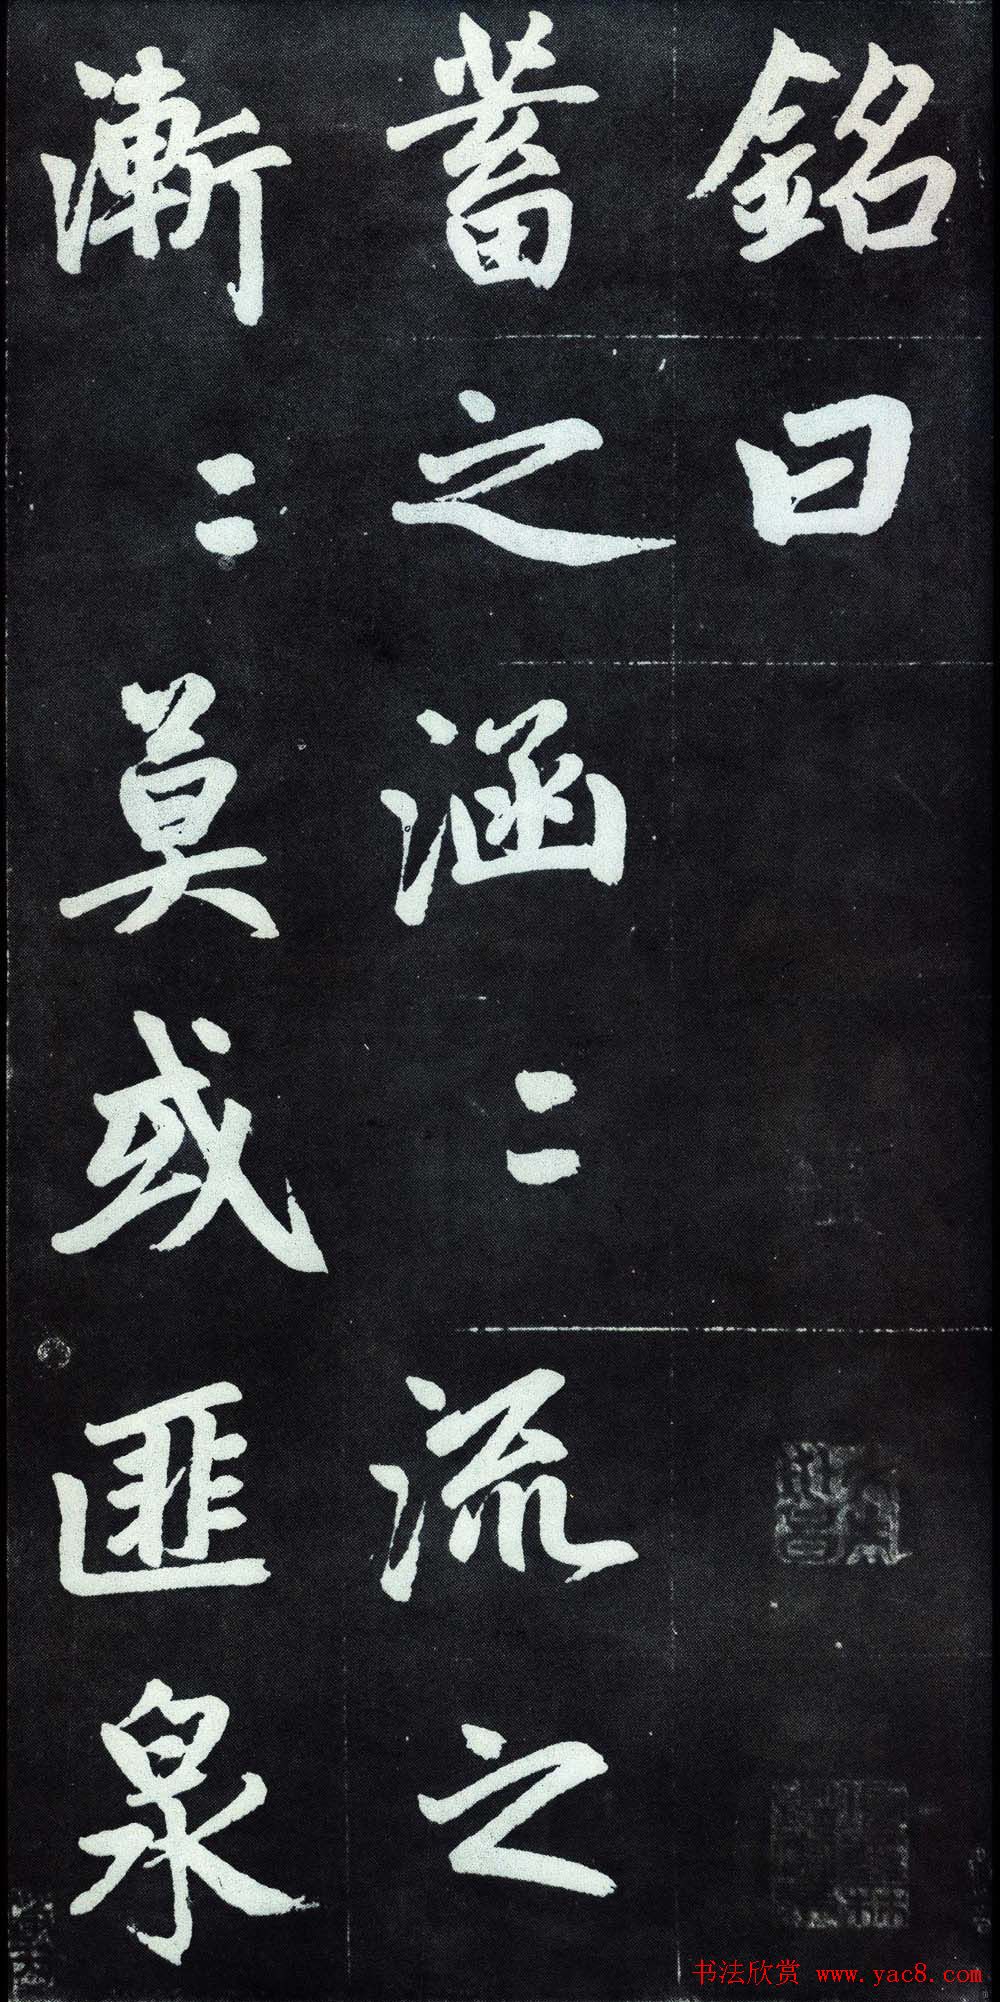 銘曰
蓄之涵〻流之
漸〻莫或匪泉
书法欣赏 www.yac8.com